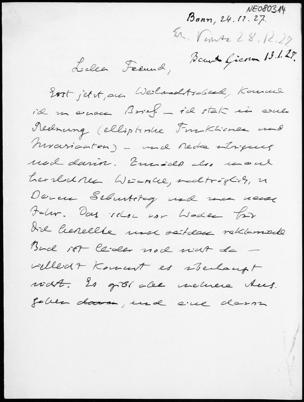 NE080314
Bonn, 24. 12. 27.
28. 12. 27
13. 1. 28.
Lieber Freund,
Erst jetzt, am Weihnachtsabend, komme
ich zu einem Brief – ich stak in einer
Rechnung (elliptische Funktionen und
Invarianten) – und stecke übrigens
noch darin. Zunächst also meine
herzlichsten Wünsche, nachträglich, zu
Deinem Geburtstag und zum neuen
Jahr. Das schon vor Wochen für
Dich bestellte und seitdem reklamierte
Buch ist leider noch nicht da –
vielleicht kommt es überhaupt
nicht. Es gibt aber mehrere Aus-
gaben davon, und eine davon